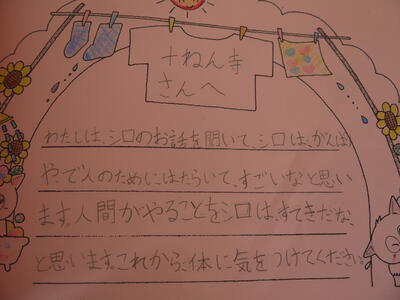 十ねん寺
さんへ
わたしは、シロのお話を聞いて、シロは、がんば
やで人のためにはたらいて、すごいなと思い
ます。人間がやることをシロは、すてきだな、
と思います。これから、体に気をつけてください。